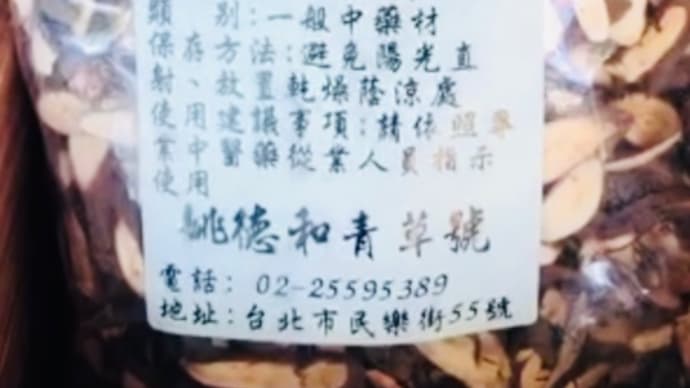 類別:一般中藥材
保存方法:避免陽光直
射、放置乾燥蔭涼處
使用建議事項:請依照專
業中醫藥從業人員指示
使用
姚德和青草號
電話: 02-25595389
地址:台北市民樂街55號